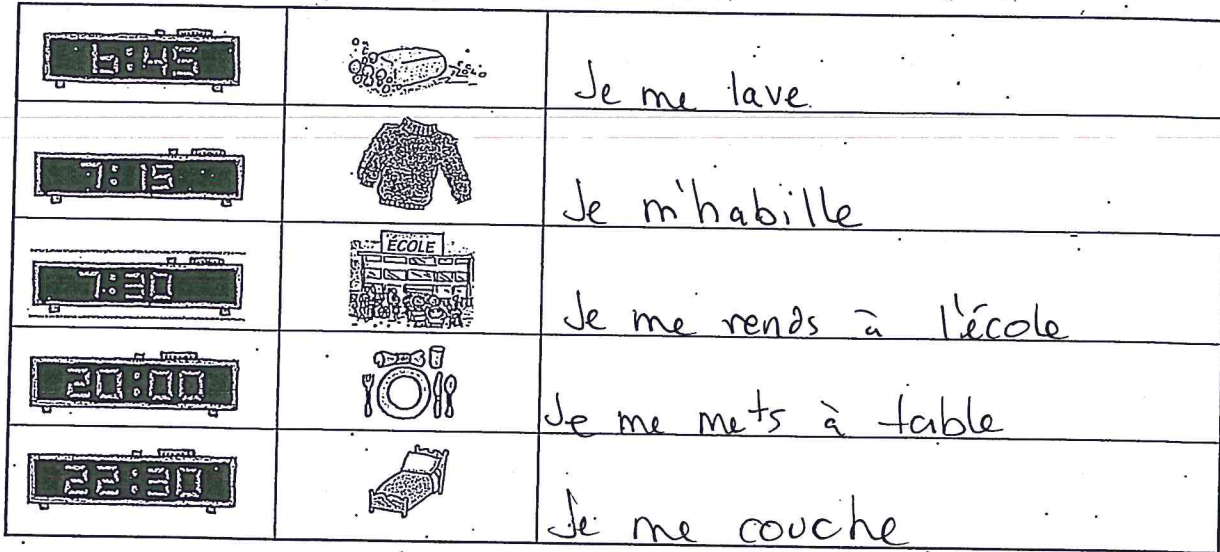 6:45
Je me lave.
7:15
Je m'habille
ÉCOLE
7:30
Je me rends à l'école
20:00
Je me mets à table
22:30
Je me couche